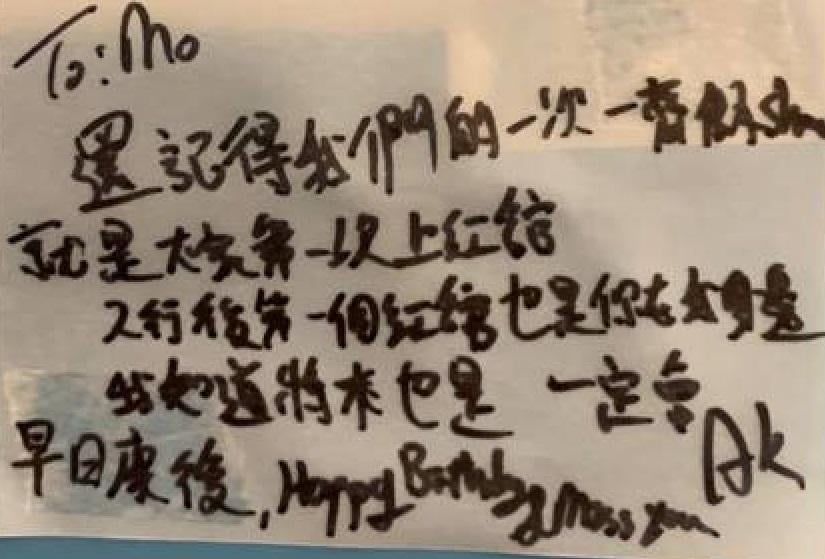 To: Mo
還記得我們的一次一齊做Show
就是大家第一次上紅館
入行後第一個紅館也是你在我身邊
我知道將來也是 一定會
早日康復, Happy Birthday & Miss you
AK